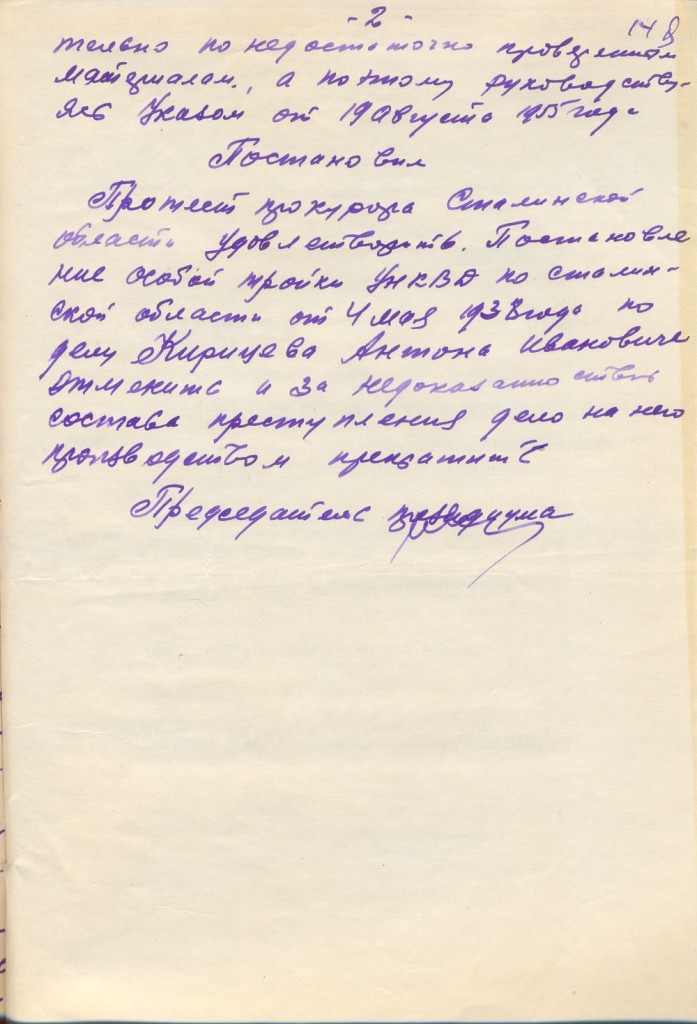 - 2 -
тельно по недостаточно проверенным
материалам, а поэтому руководству-
ясь Указом от 19 августа 1955 года
Постановил
Протест прокурора Сталинской
области удовлетворить. Постановле
ние особой тройки УНКВД по Сталин-
ской области от 4 мая 1938 года по
делу Кирицева Антона Ивановича
отменить и за недоказанностью
состава преступления дело на него
производством прекратить
Председатель президиума